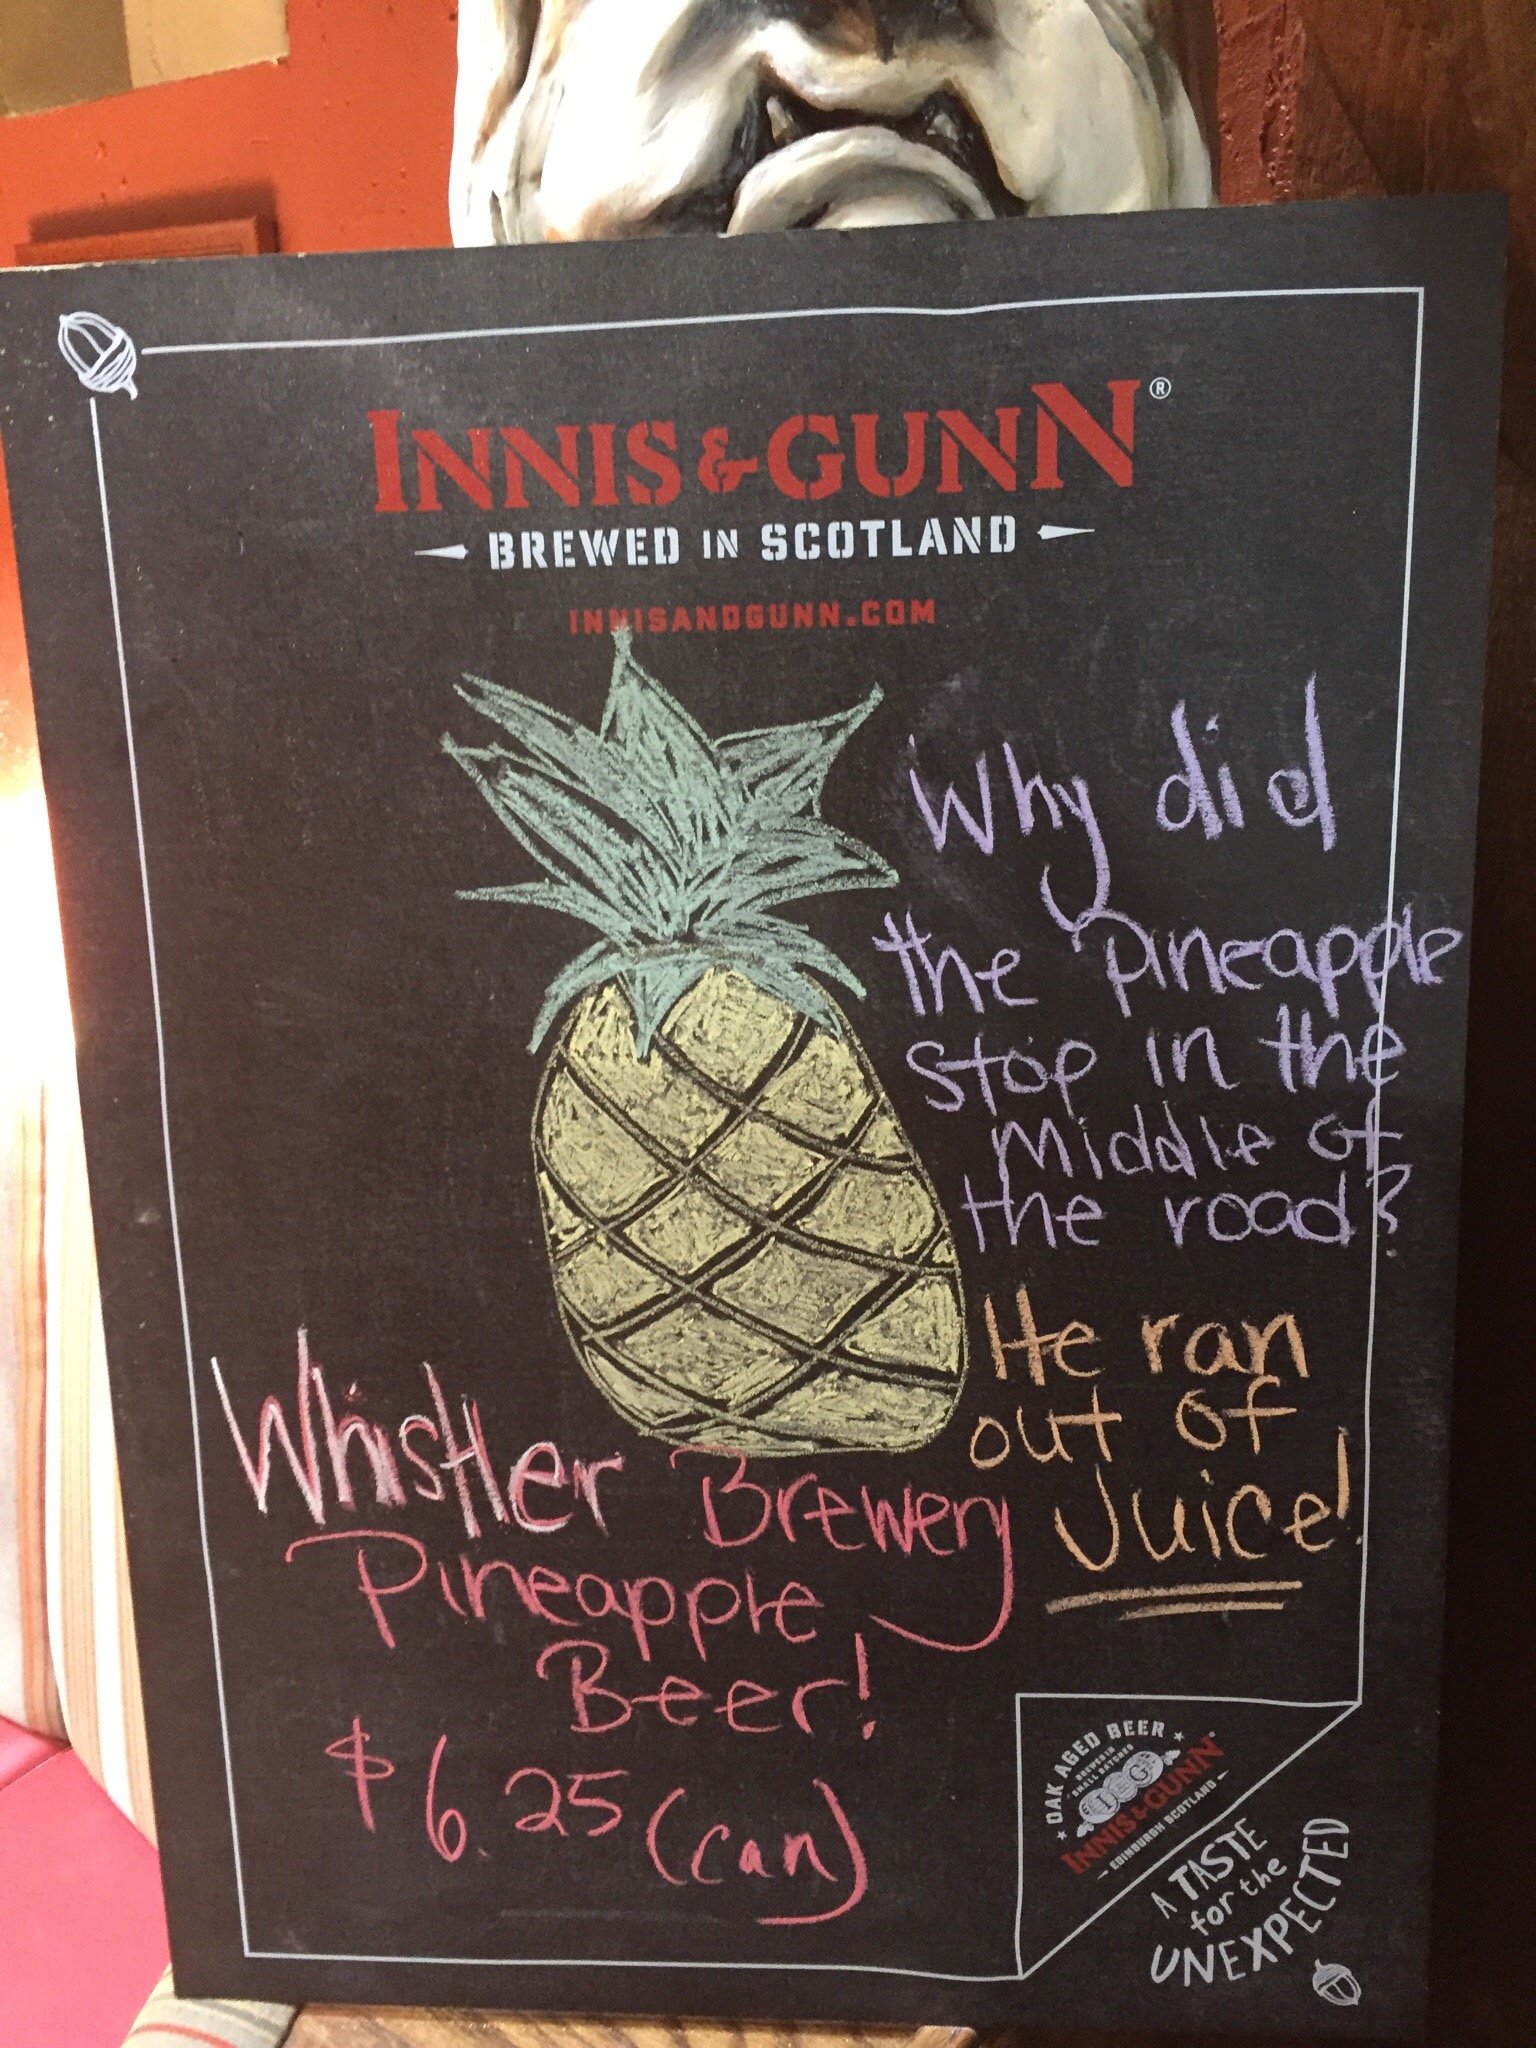 INNIS & GUNN®
BREWED IN SCOTLAND
INNISANDGUNN.COM
Why did
the Pineapple
stop in the
Middle of
the road?
He ran
out of
Juice!
Whistler Brewery
Pineapple
Beer!
$6.25 (can)
OAK AGED BEER
BREWED IN
SMALL BATCHES
I&G
INNIS & GUNN
EDINBURGH SCOTLAND
A TASTE
for the
UNEXPECTED